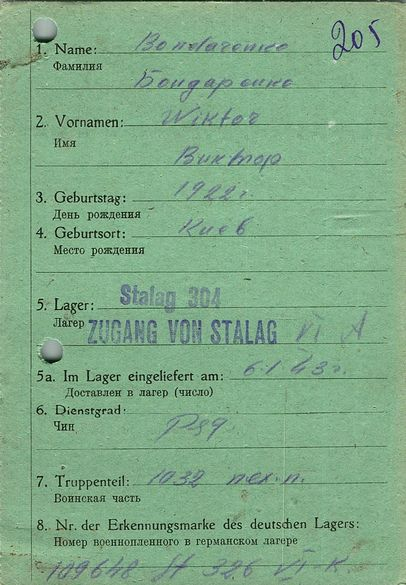 205
1. Name: Bondarenko
Фамилия
Бондаренко
2. Vornamen: Wiktor
Имя
Виктор
3. Geburtstag: 1922 г.
День рождения
4. Geburtsort: Киев
Место рождения
5. Lager: Stalag 304
Лагер ZUGANG VON STALAG VI A
5a. Im Lager eingeliefert am: 6.1.43 г.
Доставлен в лагер (число)
6. Dienstgrad:
Чин Ряд.
7. Truppenteil: 1032 пех. п.
Воинская часть
8. Nr. der Erkennungsmarke des deutschen Lagers:
Номер военнопленного в германском лагере
109648 326 VI-K.